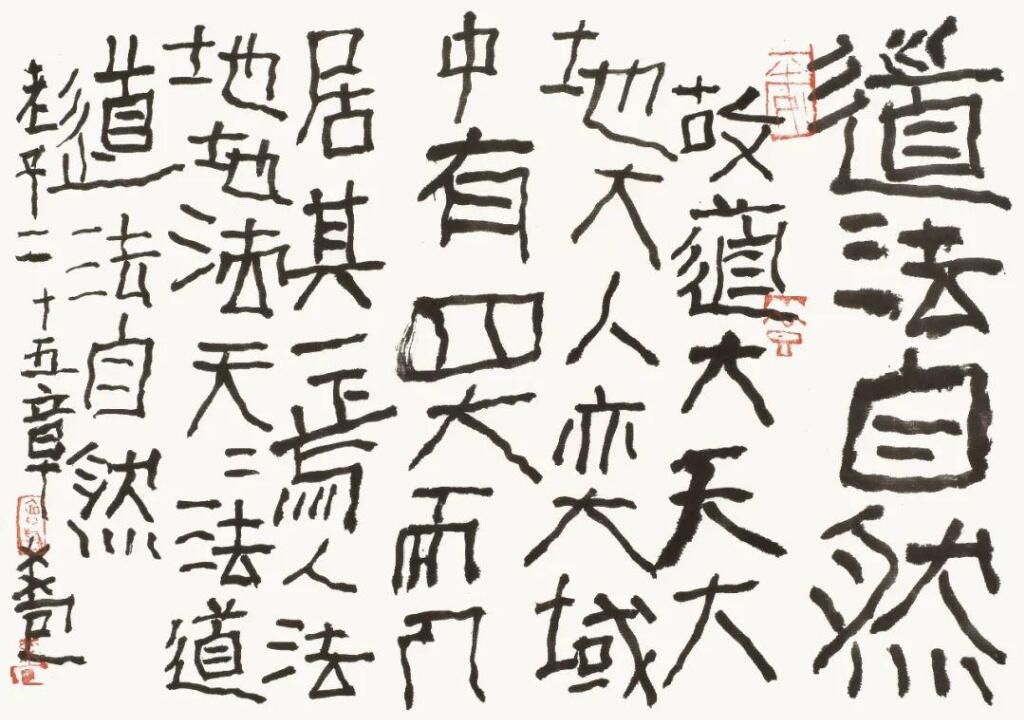 道法自然
故道大天大
地大人亦大域
中有四大而
居其一焉人法
地地法天二法道
道法自然
老子二十五章